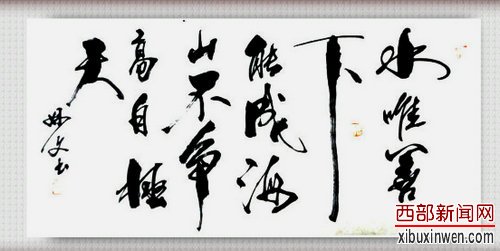 水唯善
下
能成海
山不争
高自极
天
妙文书
西部新闻网
xibuxinwen.com